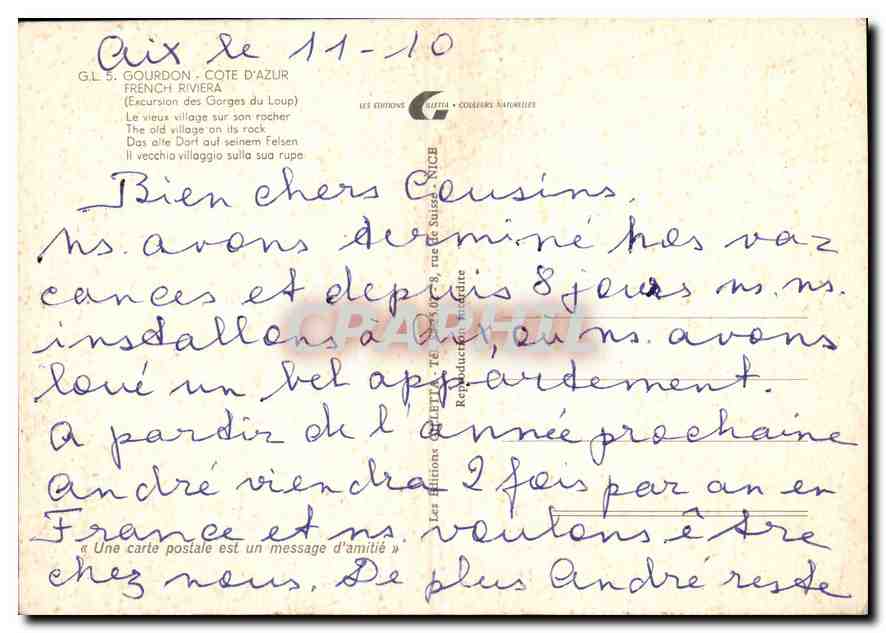 Aix le 11-10
G.L. 5. GOURDON - COTE D'AZUR
FRENCH RIVIERA
(Excursion des Gorges du Loup)
Le vieux village sur son rocher
The old village on its rock
Das alte Dorf auf seinem Felsen
Il vecchio villaggio sulla sua rupe
LES EDITIONS GILLETTA • COULEURS NATURELLES
Bien chers Cousins,
ns. avons terminé nos va-
cances et depuis 8 jours ns. ns.
installons à Aix, ou ns. avons
loué un bel appartement.
A partir de l'année prochaine
André viendra 2 fois par an en
France et ns. voulons être
chez nous. De plus André reste
« Une carte postale est un message d'amitié »
Les Editions GILLETTA - 8, rue de Suisse - NICE
Reproduction Interdite
CPARHIL